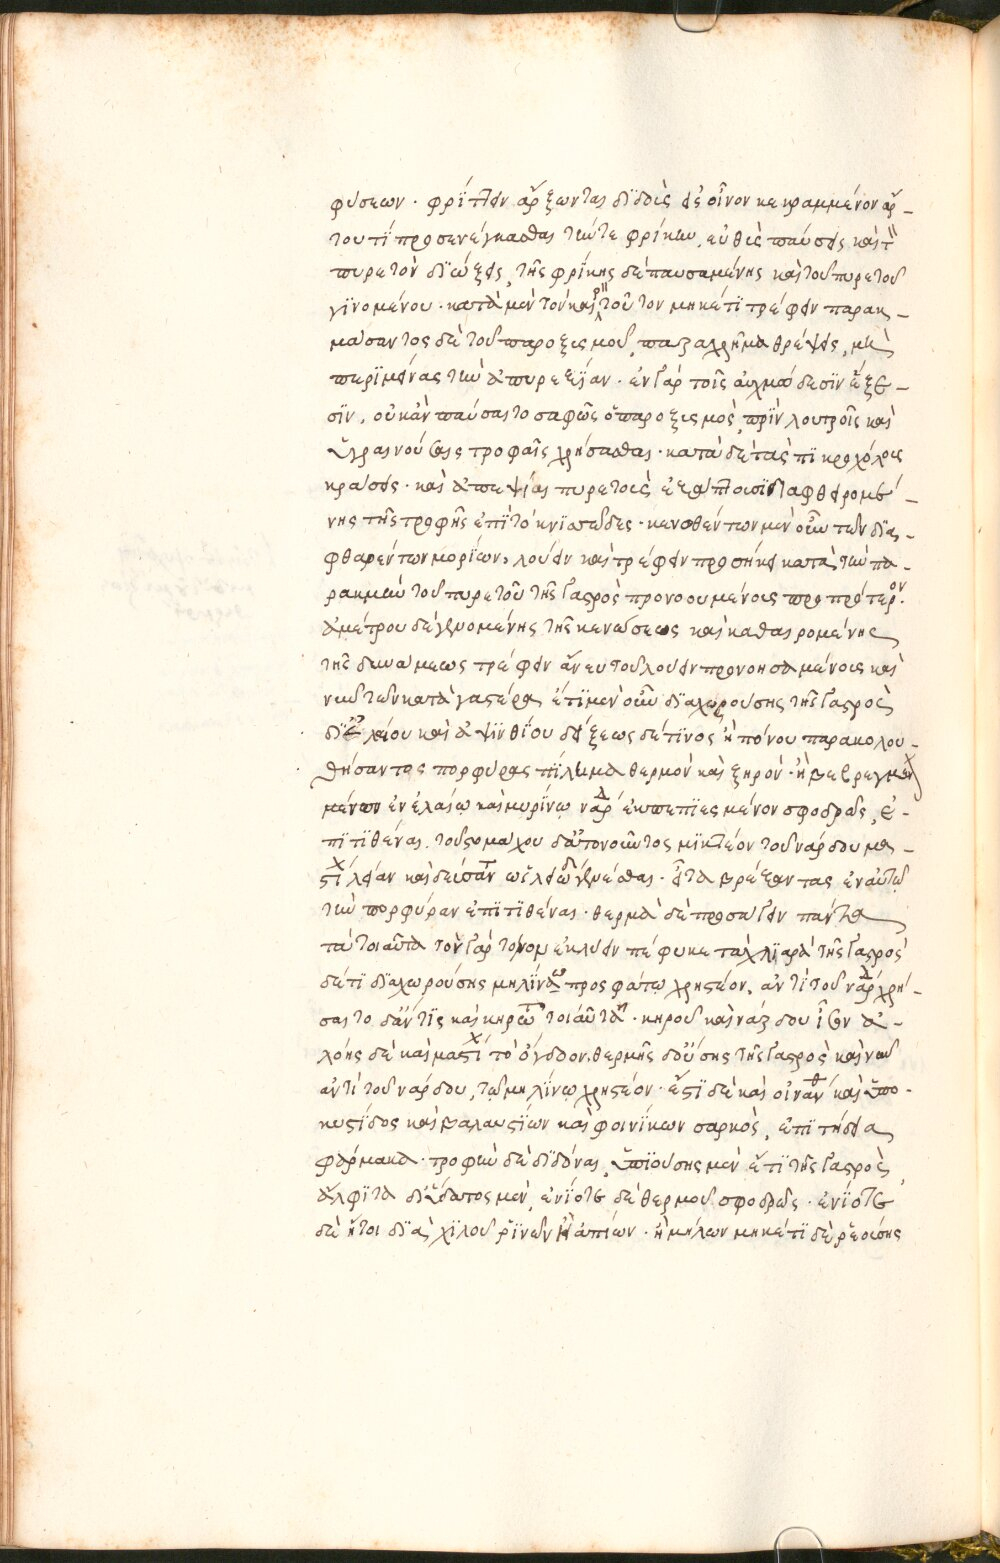 φύσεων · φρίττειν ἄρξωνται διδοὺς δὲ οἶνον κεκραμμένον ἄρ-
του τί προσενέγκασθαι τήν τε φρίκην, εὐθὺς παύσεις καὶ τ
πυρετὸν διώξεις, τῆς φρίκης δὲ παυσαμένης καὶ τοῦ πυρετοῦ
γινομένου · κατὰ μὲν τὸν καιρ τοῦτον μηκέτι τρέφειν παρακ-
μάσαντος δὲ τοῦ παροξισμοῦ, παραχρῆμα θρέψεις, μὴ
περιμείνας τὴν ἀπυρεξίαν · ἐν γὰρ τοῖς αὐχμώδεσιν ἕξε-
σιν, οὐκ ἂν παύσαιτο σαφῶς ὁ παροξισμὸς, πρὶν λουτροῖς καὶ
ὑγραινούσαις τροφαῖς χρήσασθαι · κατὰ δὲ τὰς πικροχόλοις
κράσεις · καὶ ἀπεψίαι πυρετοὺς ἐξάπτουσι διαφθειρομέ-
νης τῆς τροφῆς ἐπὶ τὸ κνισῶδες · κενωθέντων μὲν οὖν τῶν δια-
φθαρέντων μορίων, λούειν καὶ τρέφειν προσήκει κατὰ τὴν πα-
ρακμὴν τοῦ πυρετοῦ τῆς γαστρὸς προνοουμένοις προ πρότερον·
ἀμέτρου δὲ γενομένης τῆς κενώσεως καὶ καθαιρομένης
τῆς δυνάμεως τρέφειν ἄνευ τοῦ λούειν προνοησαμένοις καὶ
νῦν τῶν κατὰ γαστέρα ἔτι μὲν οὖν διαχωρούσης τῆς γαστρὸς
δι ἐλαίου καὶ ἀψινθίου δήξεως δέ τινος ἢ πόνου παρακολου-
θήσαντος πορφύρας πίλημα θερμὸν καὶ ξηρὸν · ἢ βεβρεγμ
μένον ἐν ἐλαίῳ καὶ μυρίνῳ νάρδ ἐκπεπιεσμένον σφοδρῶς, ἐ-
πιτιθέναι. τοῦ στομάχου δ' ἀτονοῦντος μικτέον τοῦ νάρδου μα-
στίχ λείαν
τὴν πορφύραν ἐπιτιθέναι · θερμὰ δὲ προσάγειν πάντα
τὰ τοιαῦτα τὸν γὰρ τόνον ἐκλύειν πέφυκε τὰ χλιαρὰ τῆς γαστρὸς
δ' ἔτι διαχωρούσης μηλίνῳ προσφάτῳ χρηστέον. ἀντὶ τοῦ νάρδ χρή-
σαιτο δ' ἄν τις καὶ κηρωτ τοιαῦτ · κηροῦ καὶ νάρδου ἴσον ἀ-
λόης δὲ καὶ μαστίχ τὸ ὄγδοον. θερμῆς δ' οὔσης τῆς γαστρὸς καὶ νῦν
ἀντὶ τοῦ νάρδου, τῷ μηλίνῳ χρηστέον · ἔστι δὲ καὶ οἰνάνθ καὶ ὑπο-
κυστίδος καὶ βαλαυστίων καὶ φοινίκων σαρκὸς, ἐπιτήδεια
φάρμακα · τροφὴν δὲ διδόναι, ὑπιούσης μὲν ἔτι τῆς γαστρὸς,
ἄλφιτα δι' ὕδατος μὲν, ἐνίοτε δὲ θερμοῦ σφοδρῶς · ἐνίοτε
δὲ ἤτοι διὰ χιλοῦ ῥινῶν ἢ ἀπίων · ἢ μήλων μηκέτι δὲ ῥεούσης